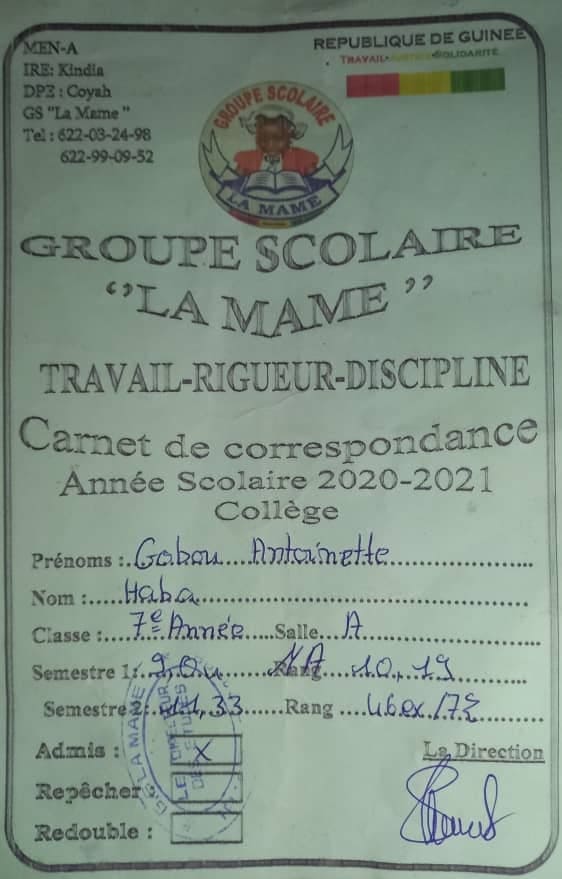 MEN-A
IRE: Kindia
DPE : Coyah
GS "La Mame "
Tel : 622-03-24-98
622-99-09-52
REPUBLIQUE DE GUINEE
TRAVAIL-JUSTICE-SOLIDARITE
GROUPE SCOLAIRE
LA MAME
GROUPE SCOLAIRE
‘’LA MAME ’’
TRAVAIL-RIGUEUR-DISCIPLINE
Carnet de correspondance
Année Scolaire 2020-2021
Collège
Prénoms :..Gobou....Antoinette
Nom :.....Haba
Classe :....7e Année.....Salle...A
Semestre 1: 9,04 Rang 10,19
Semestre 2: 11,33......Rang ...46ex/72
Admis : X
La Direction
Repêcher
Redouble :
G.S LA MAME
LE DIRECTEUR
DES ETUDES